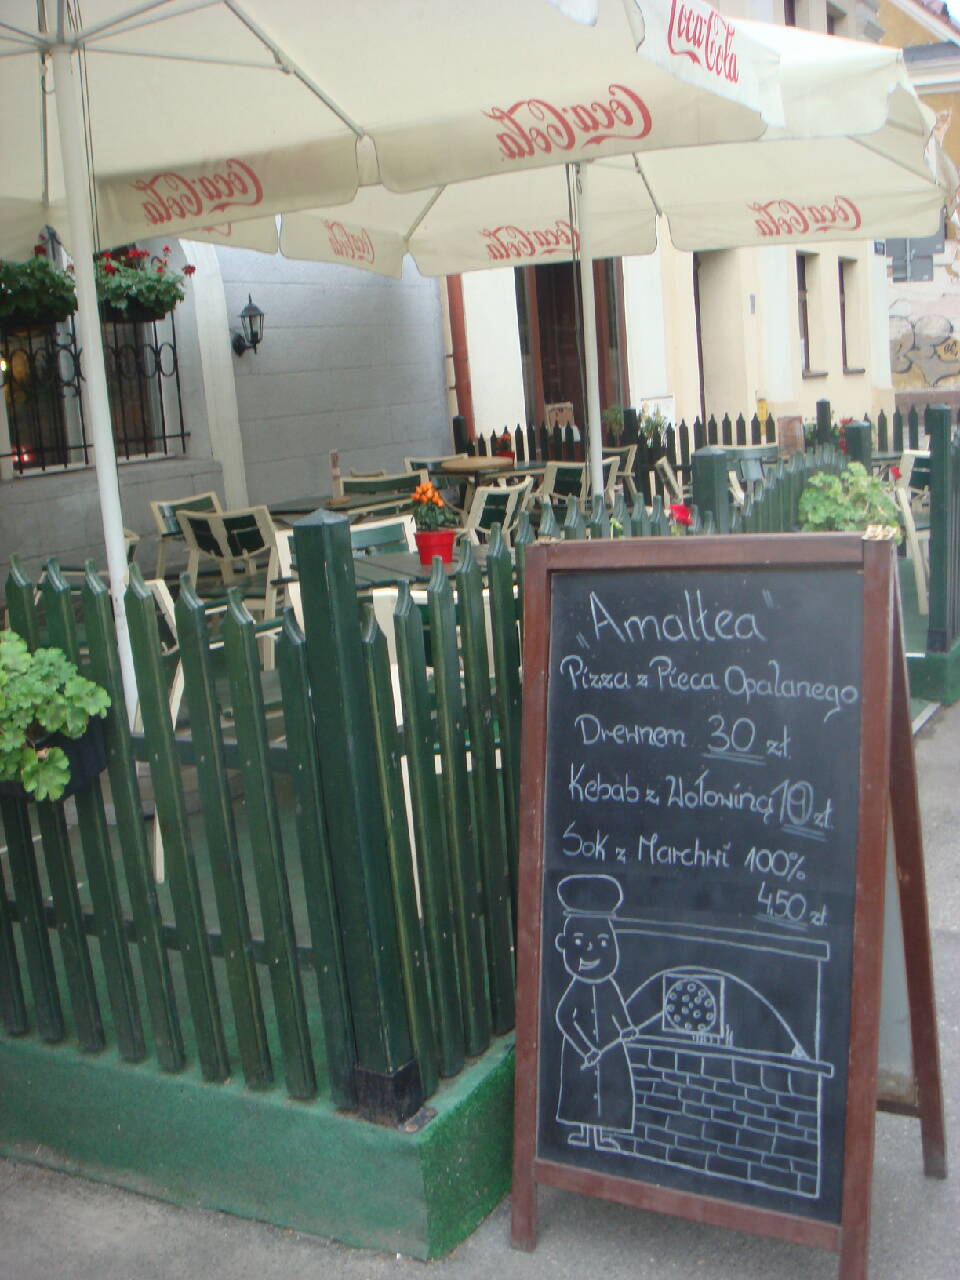 Coca-Cola
Coca-Cola
Coca-Cola
Coca-Cola
Coca-Cola
Coca-Cola
„Amaltea”
Pizza z Pieca Opalanego
Drewnem 30 zł
Kebab z Wołowiną 10 zł.
Sok z Marchwi 100%
450 zł